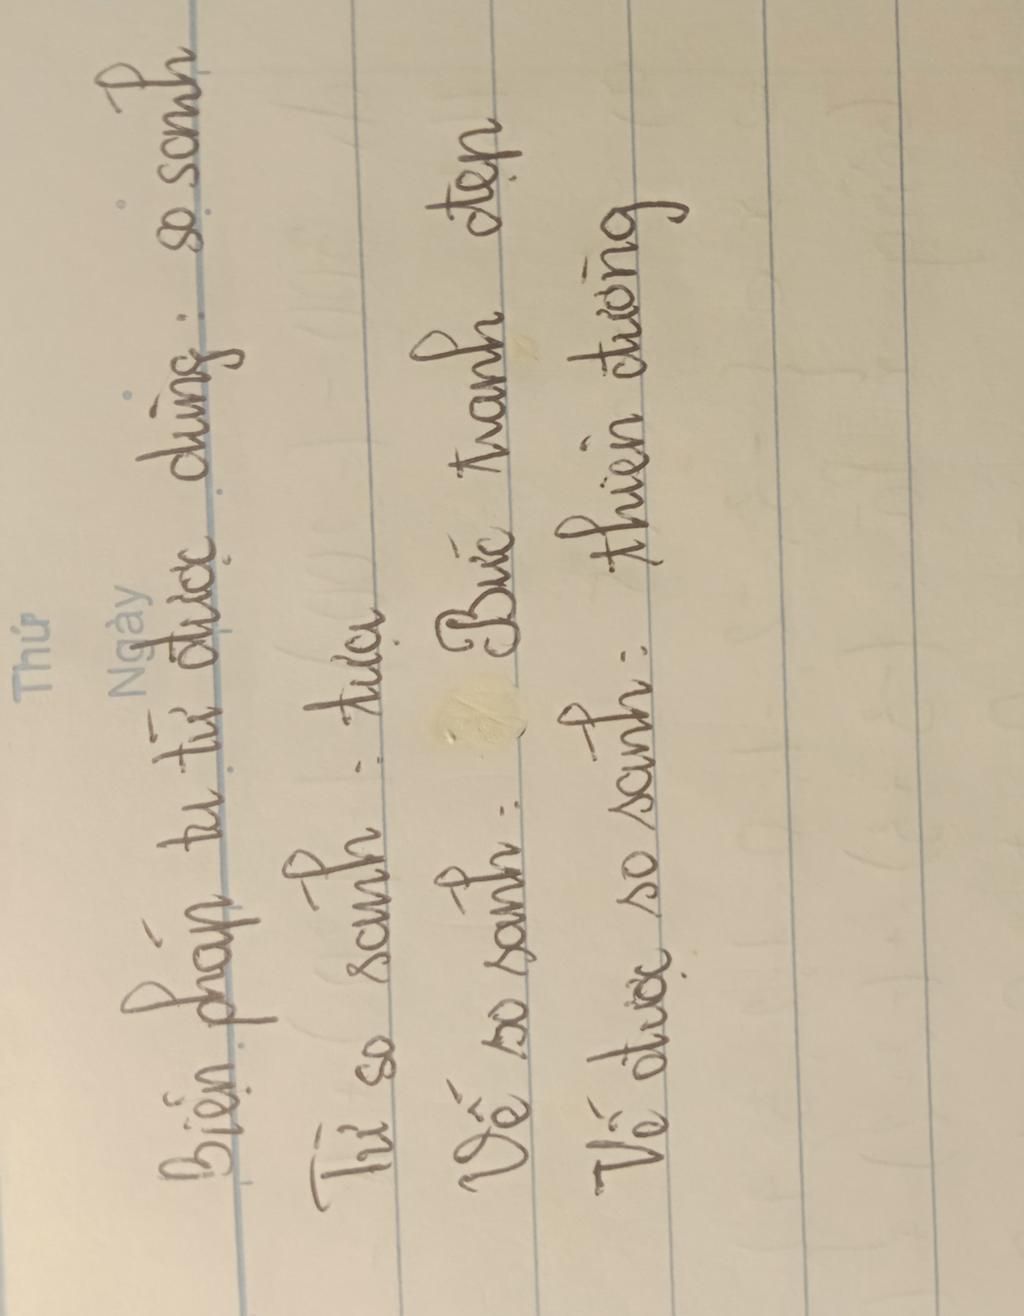 Thứ
Ngày
Biện pháp tu từ được dùng: so sánh
Từ so sánh: tựa
Vế so sánh: Bức tranh đẹp
Vế được so sánh: thiên đường